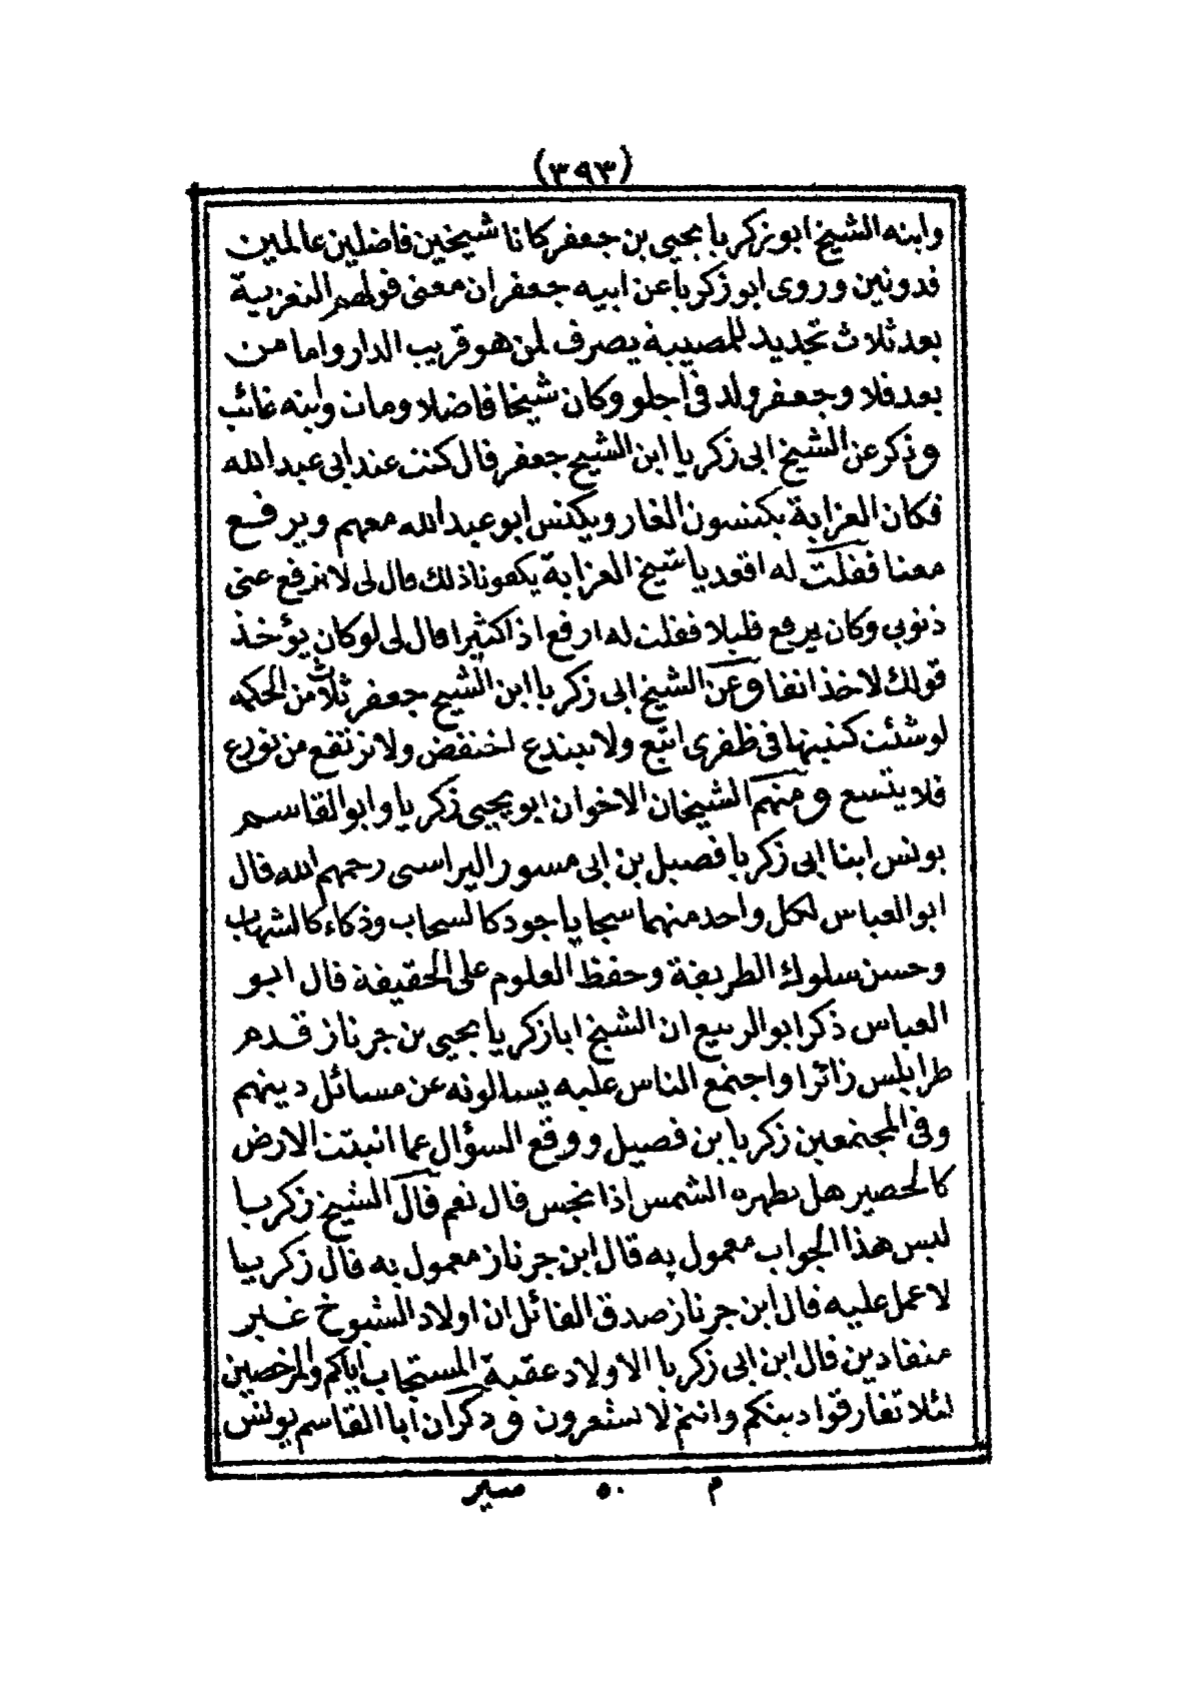 (٣٩٣)
وابنه الشيخ ابو زكرياء يحيى بن جعفر كانا شيخين فاضلين عالمين
قدوتين وروى ابو زكريا عن ابيه جعفر ان معنى قولهم التعزية
بعد ثلاث تجديد للمصيبة يصرف لمن هو قريب الدار واما من
بعد فلا وجعفر ولد فى اجلو وكان شيخا فاضلا ومات وابنه غائب
وذكر عن الشيخ ابى زكريا ابن الشيخ جعفر قال كنت عند ابى عبد الله
فكان العزابة يكنسون الغار ويكنس ابو عبد الله معهم ويرفع
معنا فقلت له اقعد يا شيخ العزابة يكفونا ذلك قال لى لا نرفع عنى
ذنوبى وكان يرفع قليلا فقلت له ارفع اذا كثيرا قال لى لو كان يؤخذ
قولك لاخذ انفا وعن الشيخ ابى زكريا ابن الشيخ جعفر ثلاث من الحكمة
لو شئت كتبتها فى ظفرى اتبع ولا تبتدع اخنفض ولا ترتفع من تورع
فلا يتسع ومنهم الشيخان الاخوان ابو يحيى زكريا وابو القاسم
يونس ابنا ابى زكريا فصيل بن ابى مسور اليراسى رحمهم الله قال
ابو العباس لكل واحد منهما سجايا جود كالسحاب وذكاء كالشهاب
وحسن سلوك الطريقة وحفظ العلوم على الحقيقة قال ابو
العباس ذكر ابو الربيع ان الشيخ ابا زكريا يحيى بن جرناز قدم
طرابلس زائرا واجتمع الناس عليه يسالونه عن مسائل دينهم
وفى المجتمعين زكريا بن فصيل ووقع السؤال عما انبتت الارض
كالحصير هل يطهره الشمس اذا نجس قال نعم قال الشيخ زكريا
ليس هذا الجواب معمول به قال ابن جرناز معمول به قال زكريا
لا عمل عليه قال ابن جرناز صدق القائل ان اولاد الشيوخ غير
منقادين قال ابن ابى زكريا الاولاد عقبة المستجاب اياكم والمرخصين
لئلا تفارقوا دينكم وانتم لا تشعرون وذكر ان ابا القاسم يونس
م ٥٠ سير